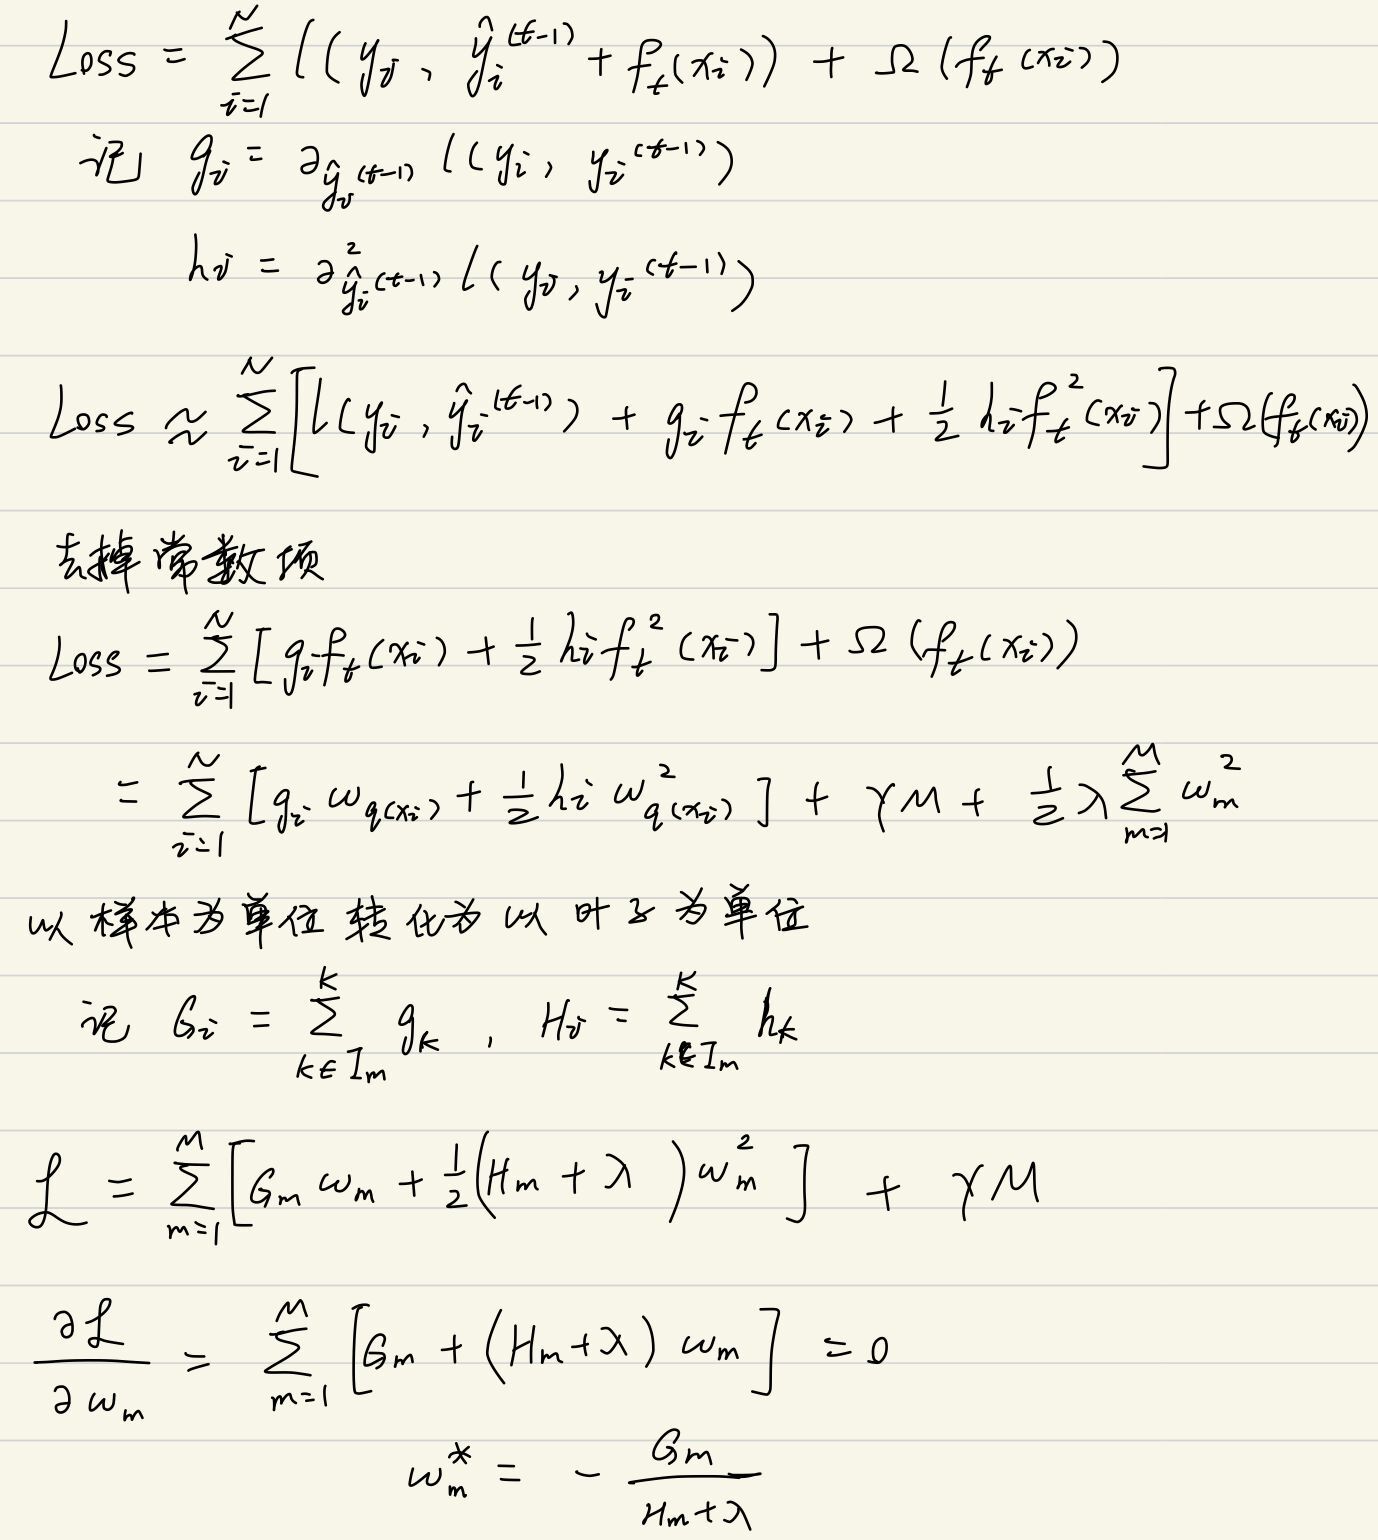 Loss = \sum_{i=1}^{N} l(y_i, \hat{y}_i^{(t-1)} + f_t(x_i)) + Ω(f_t(x_i))
记 g_i = ∂_{\hat{y}_i^{(t-1)}} l(y_i, y_i^{(t-1)})
h_i = ∂^2_{\hat{y}_i^{(t-1)}} l(y_i, y_i^{(t-1)})
Loss ≈ \sum_{i=1}^{N} [l(y_i, \hat{y}_i^{(t-1)}) + g_i f_t(x_i) + \frac{1}{2} h_i f_t^2(x_i)] + Ω(f_t(x_i))
去掉常数项
Loss = \sum_{i=1}^{N} [g_i f_t(x_i) + \frac{1}{2} h_i f_t^2(x_i)] + Ω(f_t(x_i))
= \sum_{i=1}^{N} [g_i ω_{q(x_i)} + \frac{1}{2} h_i ω^2_{q(x_i)}] + γM + \frac{1}{2} λ \sum_{m=1}^{M} ω_m^2
以样本为单位转化为以叶子为单位
记 G_i = \sum_{k∈I_m}^{K} g_k , H_i = \sum_{k∈I_m}^{K} h_k
ℒ = \sum_{m=1}^{M} [G_m ω_m + \frac{1}{2}(H_m + λ) ω_m^2] + γM
\frac{∂ℒ}{∂ω_m} = \sum_{m=1}^{M} [G_m + (H_m + λ) ω_m] = 0
ω_m^* = - \frac{G_m}{H_m + λ}